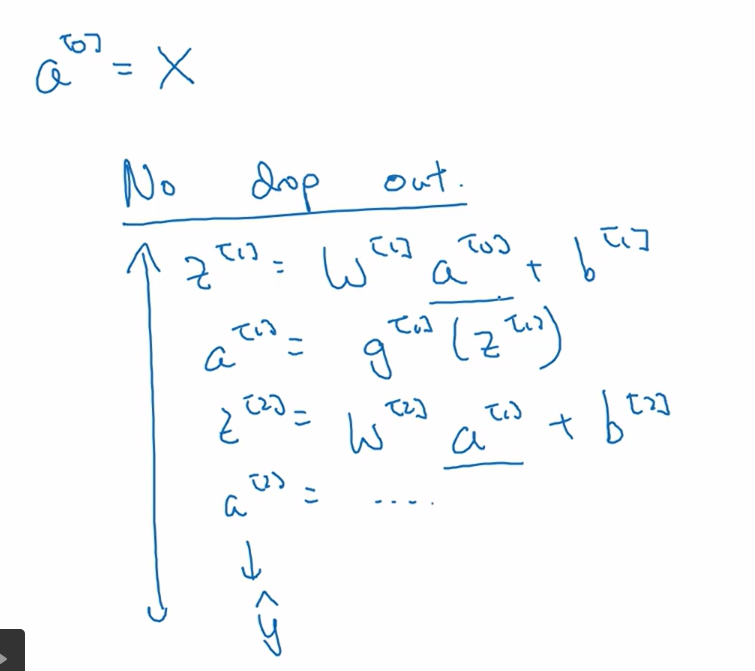 a^[0] = X
No drop out.
z^[1] = W^[1] a^[0] + b^[1]
a^[1] = g^[1] (z^[1])
z^[2] = W^[2] a^[1] + b^[2]
a^[2] = ....
↓
ŷ